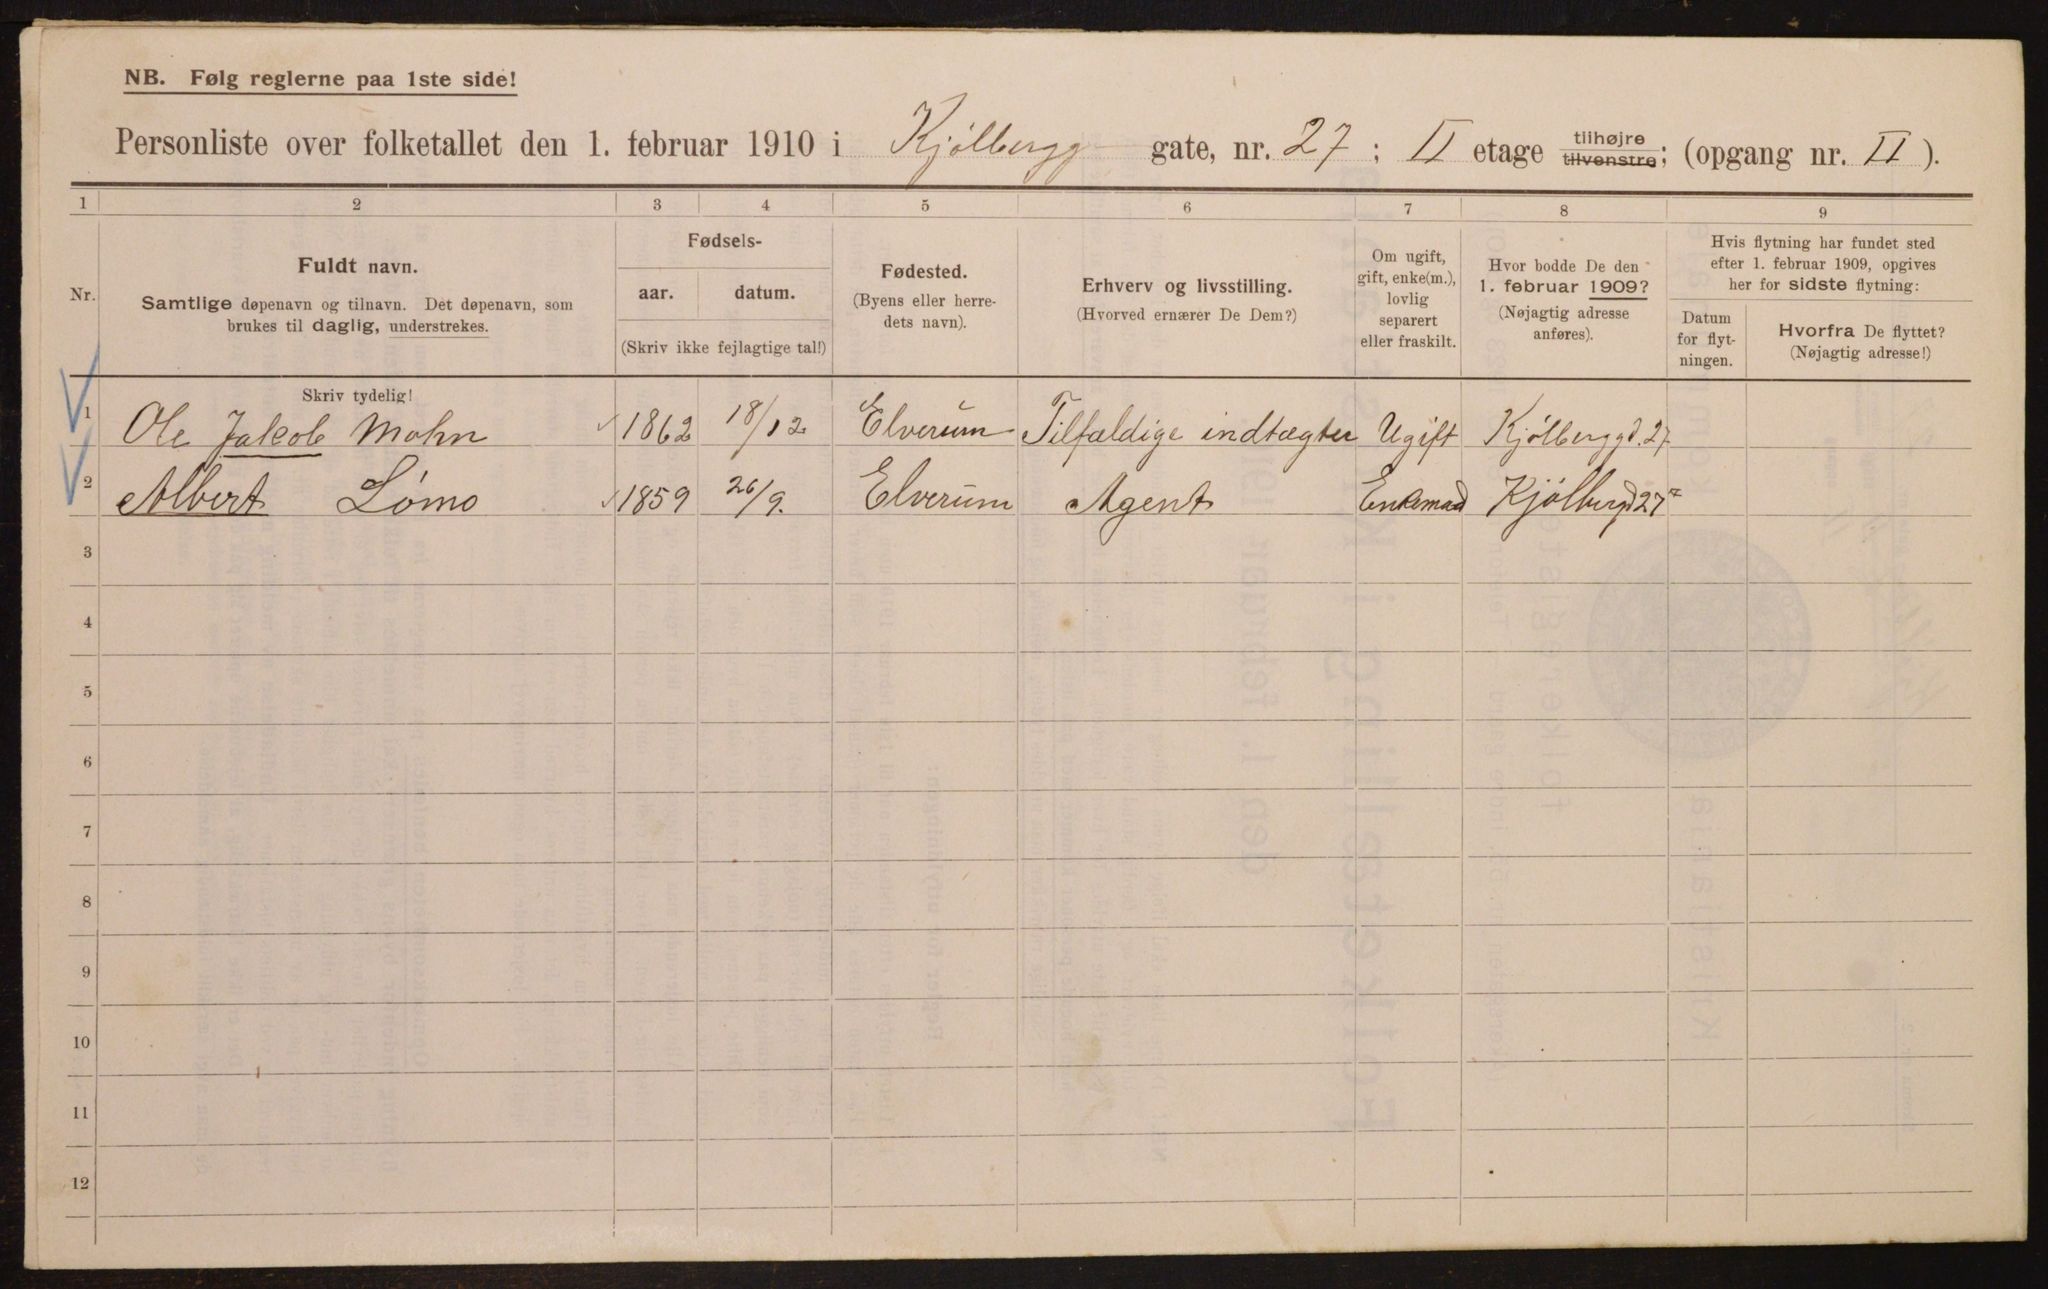 NB. Følg reglerne paa 1ste side!
Personliste over folketallet den 1. februar 1910 i Kjølbergg gate, nr. 27 ; II etage tilhøjre tilvenstre; (opgang nr. II ).
1 2 3 4 5 6 7 8 9
Nr.
Fuldt navn.
Samtlige døpenavn og tilnavn. Det døpenavn, som
brukes til daglig, understrekes.
Fødsels-
aar. datum.
(Skriv ikke fejlagtige tal!)
Fødested.
(Byens eller herre-
dets navn).
Erhverv og livsstilling.
(Hvorved ernærer De Dem?)
Om ugift,
gift, enke(m.),
lovlig
separert
eller fraskilt.
Hvor bodde De den
1. februar 1909?
(Nøjagtig adresse
anføres).
Hvis flytning har fundet sted
efter 1. februar 1909, opgives
her for sidste flytning:
Datum
for flyt-
ningen.
Hvorfra De flyttet?
(Nøjagtig adresse!)
Skriv tydelig!
1 Ole Jakob Mohn 1862 18/12 Elverum Tilfældige indtægter Ugift Kjølberggd. 27
2 Albert Lømo 1859 26/9. Elverum Agent Enkemand Kjølberggd 27
3
4
5
6
7
8
9
10
11
12